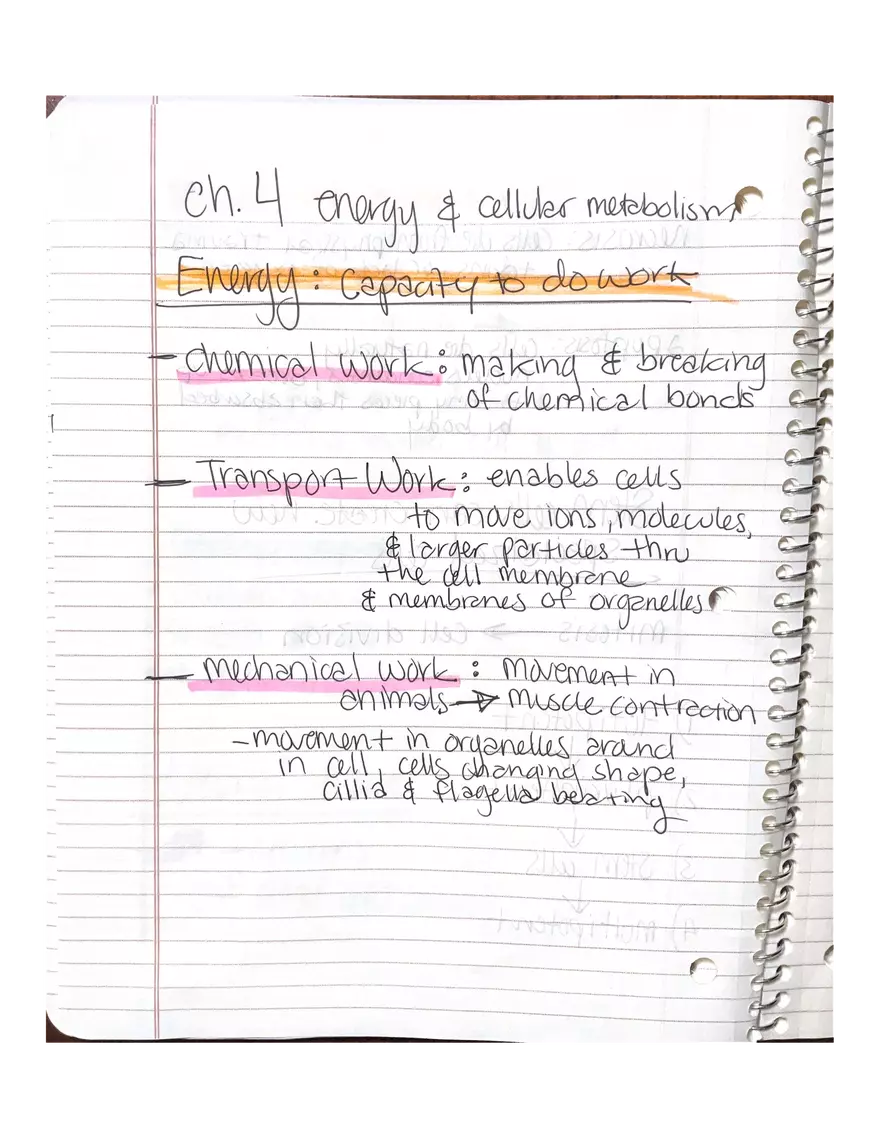 Ch. 4 energy & cellular metabolism
Energy: capacity to do work
- chemical work: making & breaking
of chemical bonds
- Transport Work: enables cells
to move ions, molecules,
& larger particles thru
the cell membrane
& membranes of organelles
- mechanical work: movement in
animals → muscle contraction
- movement in organelles around
in cell, cells changing shape,
cillia & flagella beating